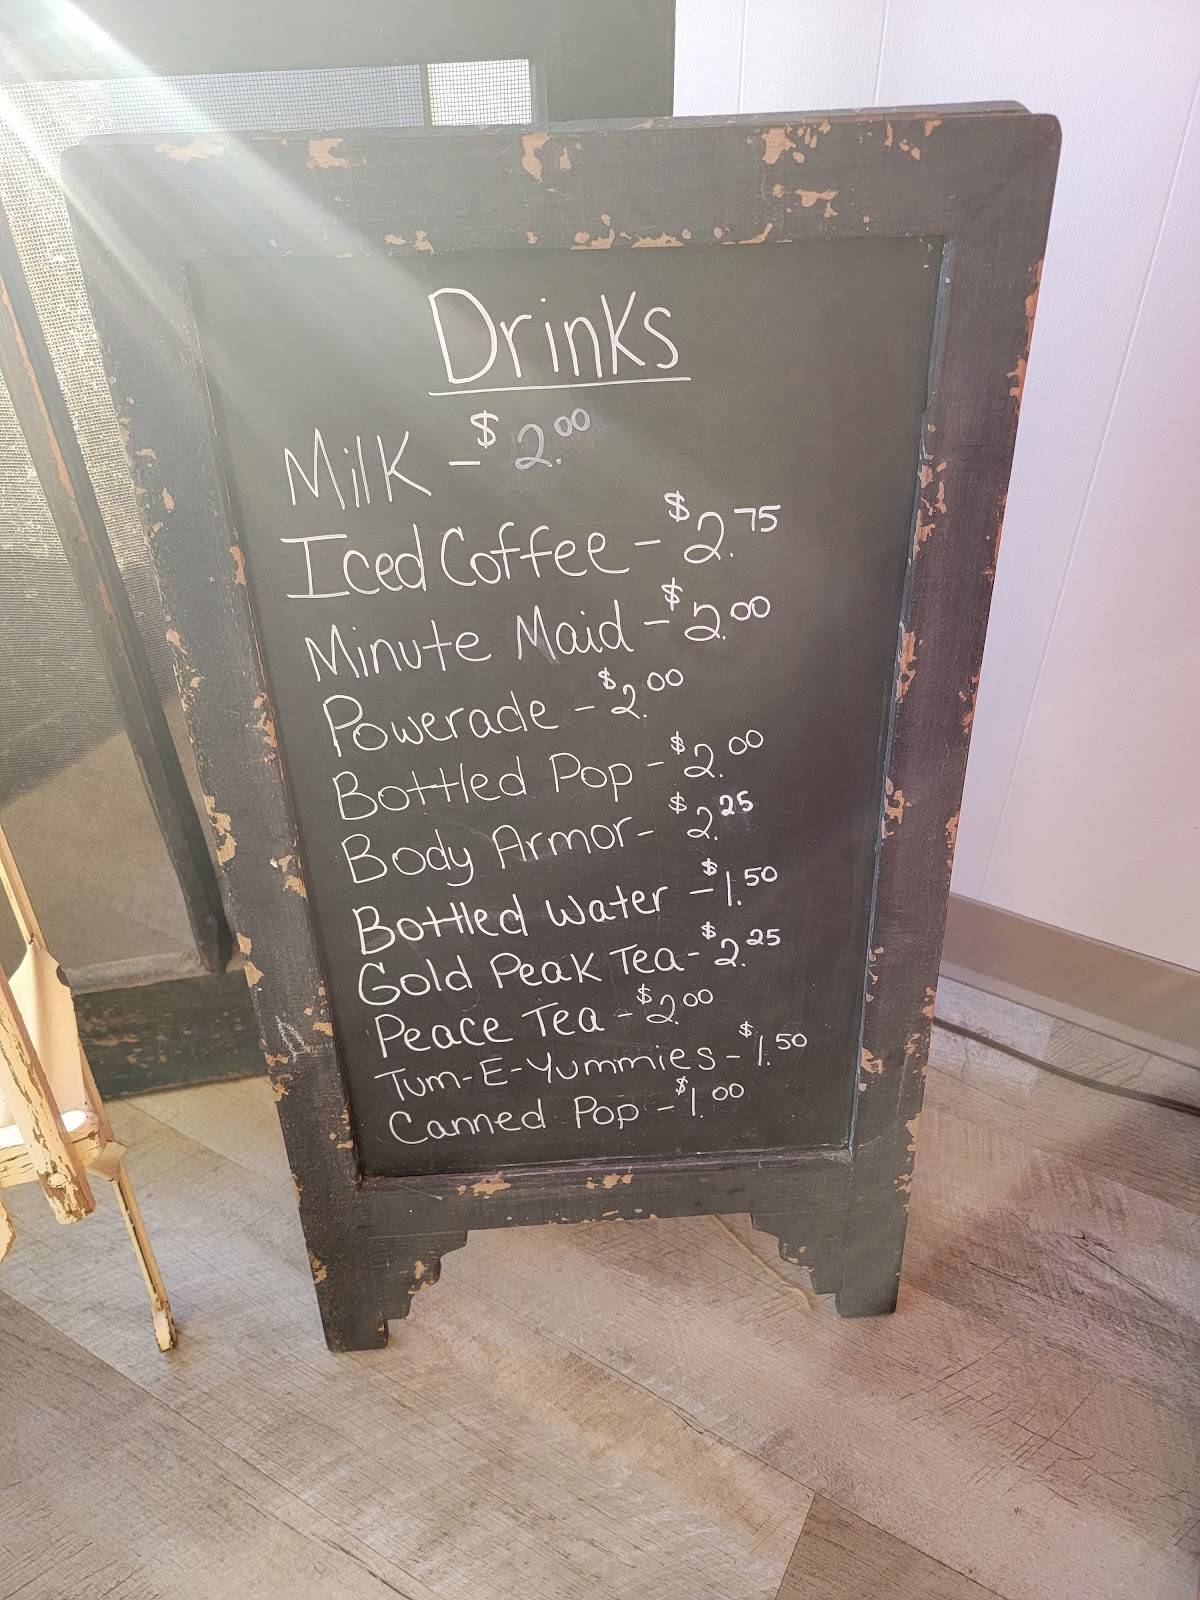 Drinks
Milk - $2.00
Iced Coffee - $2.75
Minute Maid - $2.00
Powerade - $2.00
Bottled Pop - $2.00
Body Armor - $2.25
Bottled Water - $1.50
Gold Peak Tea - $2.25
Peace Tea - $2.00
Tum-E-Yummies - $1.50
Canned Pop - $1.00